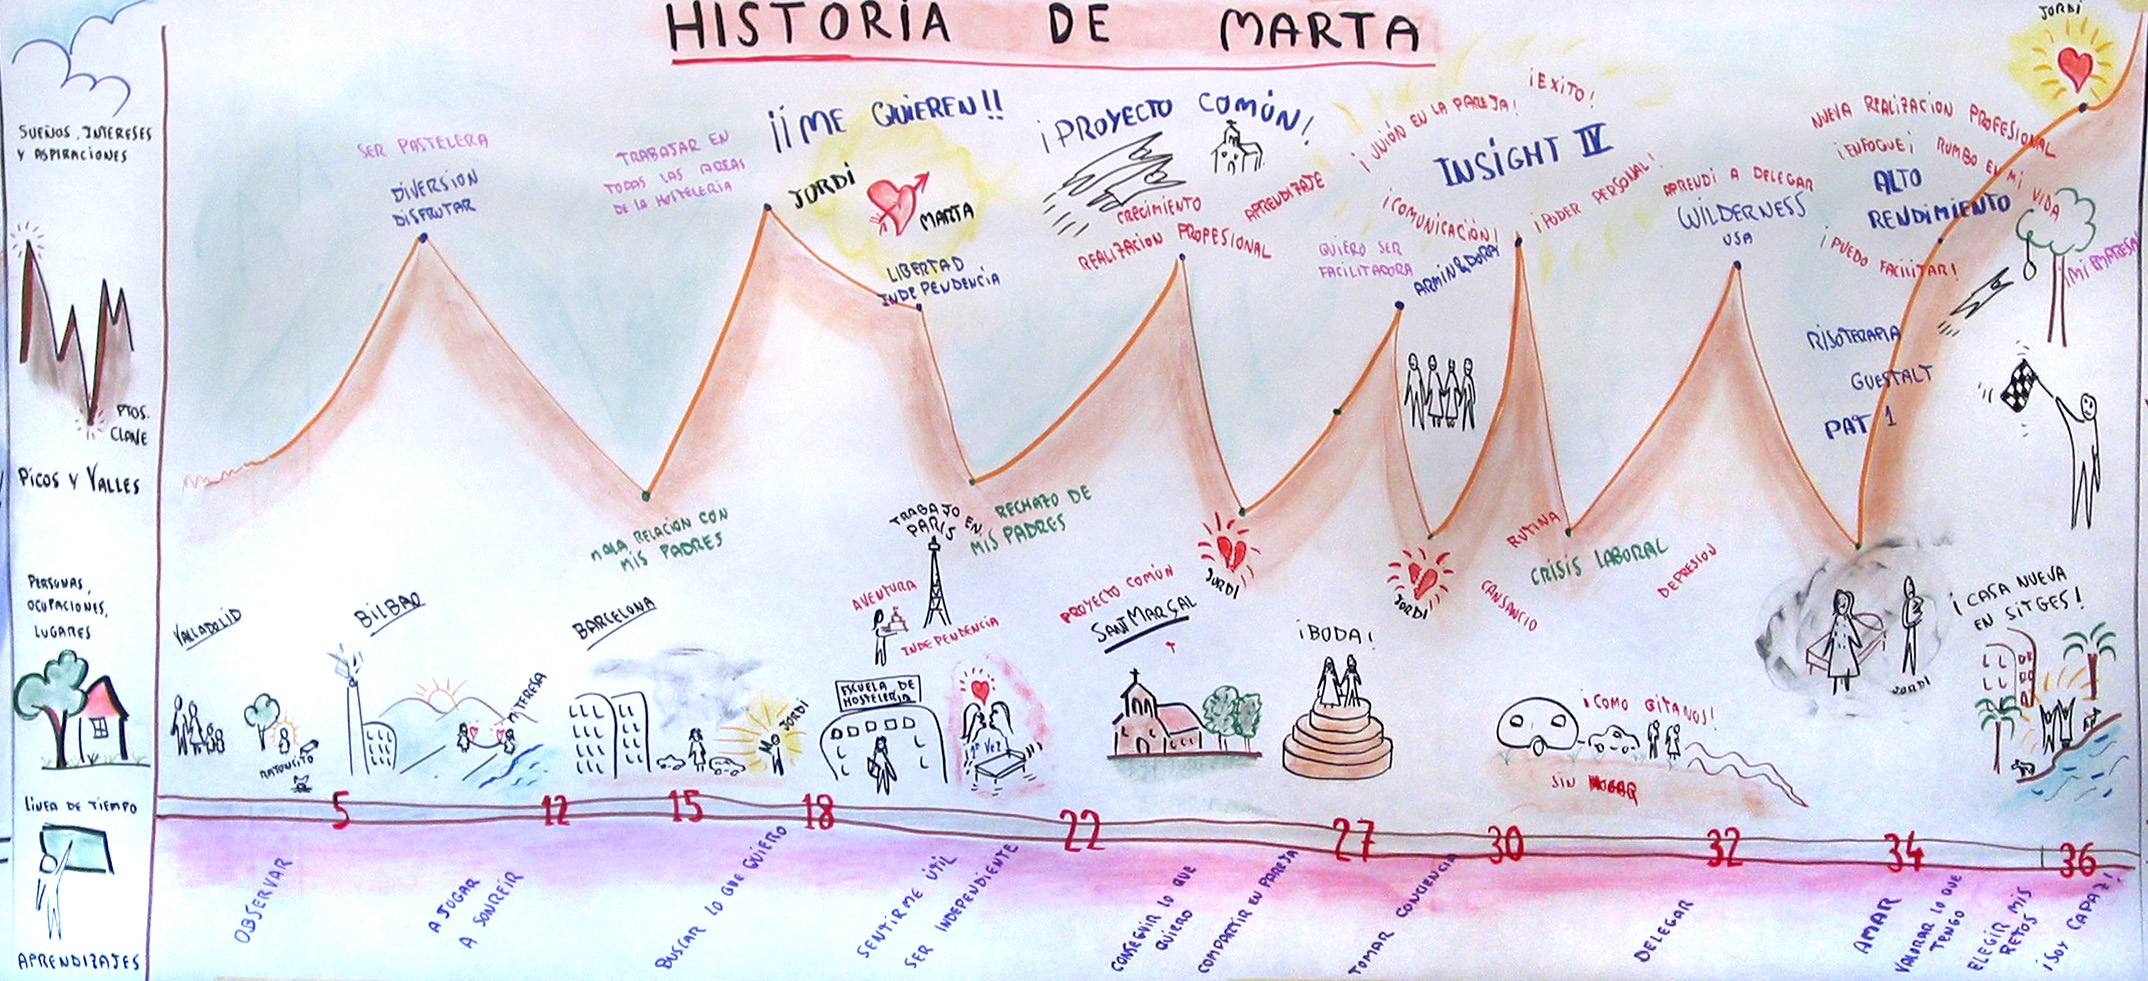 HISTORIA DE MARTA
SUEÑOS, INTERESES
Y ASPIRACIONES
PTOS.
CLAVE
PICOS Y VALLES
PERSONAS,
OCUPACIONES,
LUGARES
LINEA DE TIEMPO
APRENDIZAJES
SER PASTELERA
DIVERSION
DISFRUTAR
TRABAJAR EN
TODAS LAS AREAS
DE LA HOSTELERIA
¡¡ME QUIEREN!!
JORDI
MARTA
LIBERTAD
INDEPENDENCIA
¡PROYECTO COMÚN!
CRECIMIENTO
APRENDIZAJE
REALIZACION PROFESIONAL
¡UNIÓN EN LA PAREJA!
¡EXITO!
INSIGHT IV
¡COMUNICACIÓN!
¡PODER PERSONAL!
QUIERO SER
FACILITADORA
ARMIN&DORA
APRENDI A DELEGAR
WILDERNESS
USA
NUEVA REALIZACION PROFESIONAL
¡ENFOQUE¡ RUMBO EN MI VIDA
ALTO
RENDIMIENTO
¡PUEDO FACILITAR!
JORDI
MI EMPRESA
RISOTERAPIA
GUESTALT
PAT 1
MALA RELACION CON
MIS PADRES
TRABAJO EN
PARIS
RECHAZO DE
MIS PADRES
JORDI
JORDI
RUTINA
CRISIS LABORAL
CANSANCIO
DEPRESION
VALLADOLID
RATONCITO
BILBAO
Mª TERESA
BARCELONA
JORDI
AVENTURA
INDEPENDENCIA
ESCUELA DE
HOSTELERIA
1ª VEZ
PROYECTO COMÚN
SANT MARÇAL
¡BODA!
¡COMO GITANOS!
SIN HOGAR
JORDI
¡CASA NUEVA
EN SITGES!
5 12 15 18 22 27 30 32 34 36
OBSERVAR
A JUGAR
A SONREIR
BUSCAR LO QUE QUIERO
SENTIRME ÚTIL
SER INDEPENDIENTE
CONSEGUIR LO QUE
QUIERO
COMPARTIR EN PAREJA
TOMAR CONCIENCIA
DELEGAR
AMAR
VALORAR LO QUE
TENGO
ELEGIR MIS
RETOS
¡SOY CAPAZ!